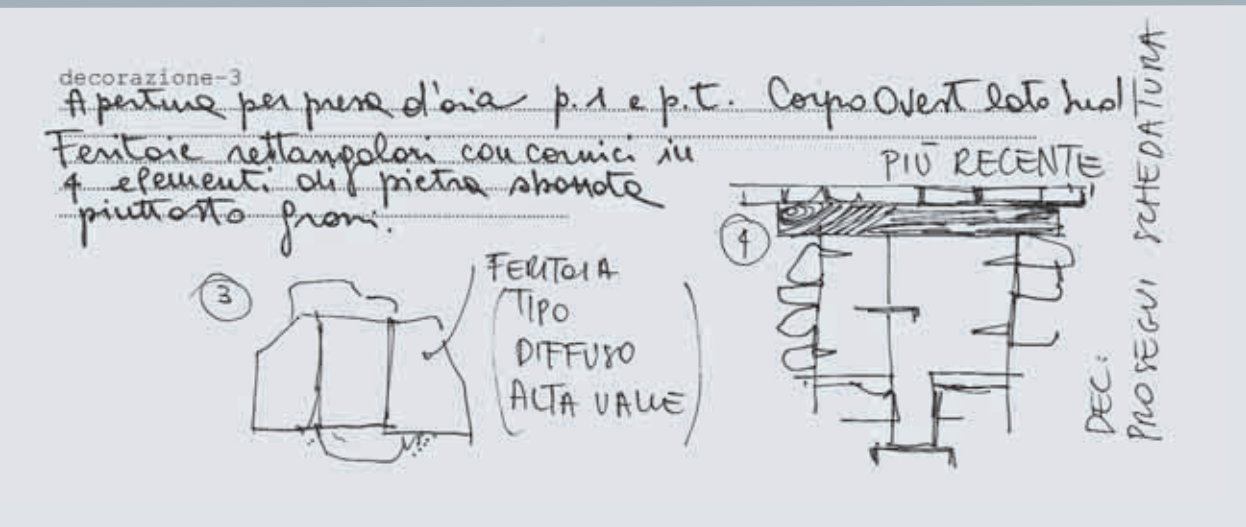 decorazione-3
Apertura per presa d'aria p.1 e p.t. Corpo Ovest lato Sud
Feritoie rettangolari con cornici in
4 elementi di pietra sbozzata
piuttosto grossi.
PIÙ RECENTE
4
3
FERITOIA
(TIPO
DIFFUSO
ALTA VALLE)
DEC:
PROSEGUI SCHEDATURA